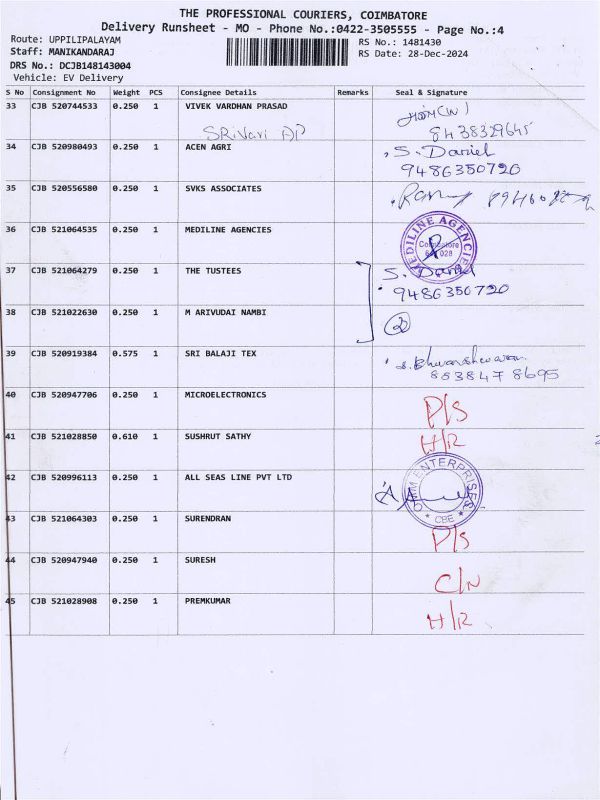 THE PROFESSIONAL COURIERS, COIMBATORE
Delivery Runsheet - MO - Phone No.:0422-3505555 - Page No.:4
Route: UPPILIPALAYAM RS No.: 1481430
Staff: MANIKANDARAJ RS Date: 28-Dec-2024
DRS No.: DCJB148143004
Vehicle: EV Delivery
S No Consignment No Weight PCS Consignee Details Remarks Seal & Signature
33 CJB 520744533 0.250 1 VIVEK VARDHAN PRASAD
SRiVari AP 8438329645
34 CJB 520980493 0.250 1 ACEN AGRI S. Daniel
9486350720
35 CJB 520556580 0.250 1 SVKS ASSOCIATES
36 CJB 521064535 0.250 1 MEDILINE AGENCIES MEDILINE AGENCIES
Coimbatore
37 CJB 521064279 0.250 1 THE TUSTEES S. Daniel
9486350720
38 CJB 521022630 0.250 1 M ARIVUDAI NAMBI 2
39 CJB 520919384 0.575 1 SRI BALAJI TEX
8838478695
40 CJB 520947706 0.250 1 MICROELECTRONICS P/S
41 CJB 521028850 0.610 1 SUSHRUT SATHY H/R
42 CJB 520996113 0.250 1 ALL SEAS LINE PVT LTD ENTERPRISES
CBE
43 CJB 521064303 0.250 1 SURENDRAN P/S
44 CJB 520947940 0.250 1 SURESH C/N
45 CJB 521028908 0.250 1 PREMKUMAR H/R